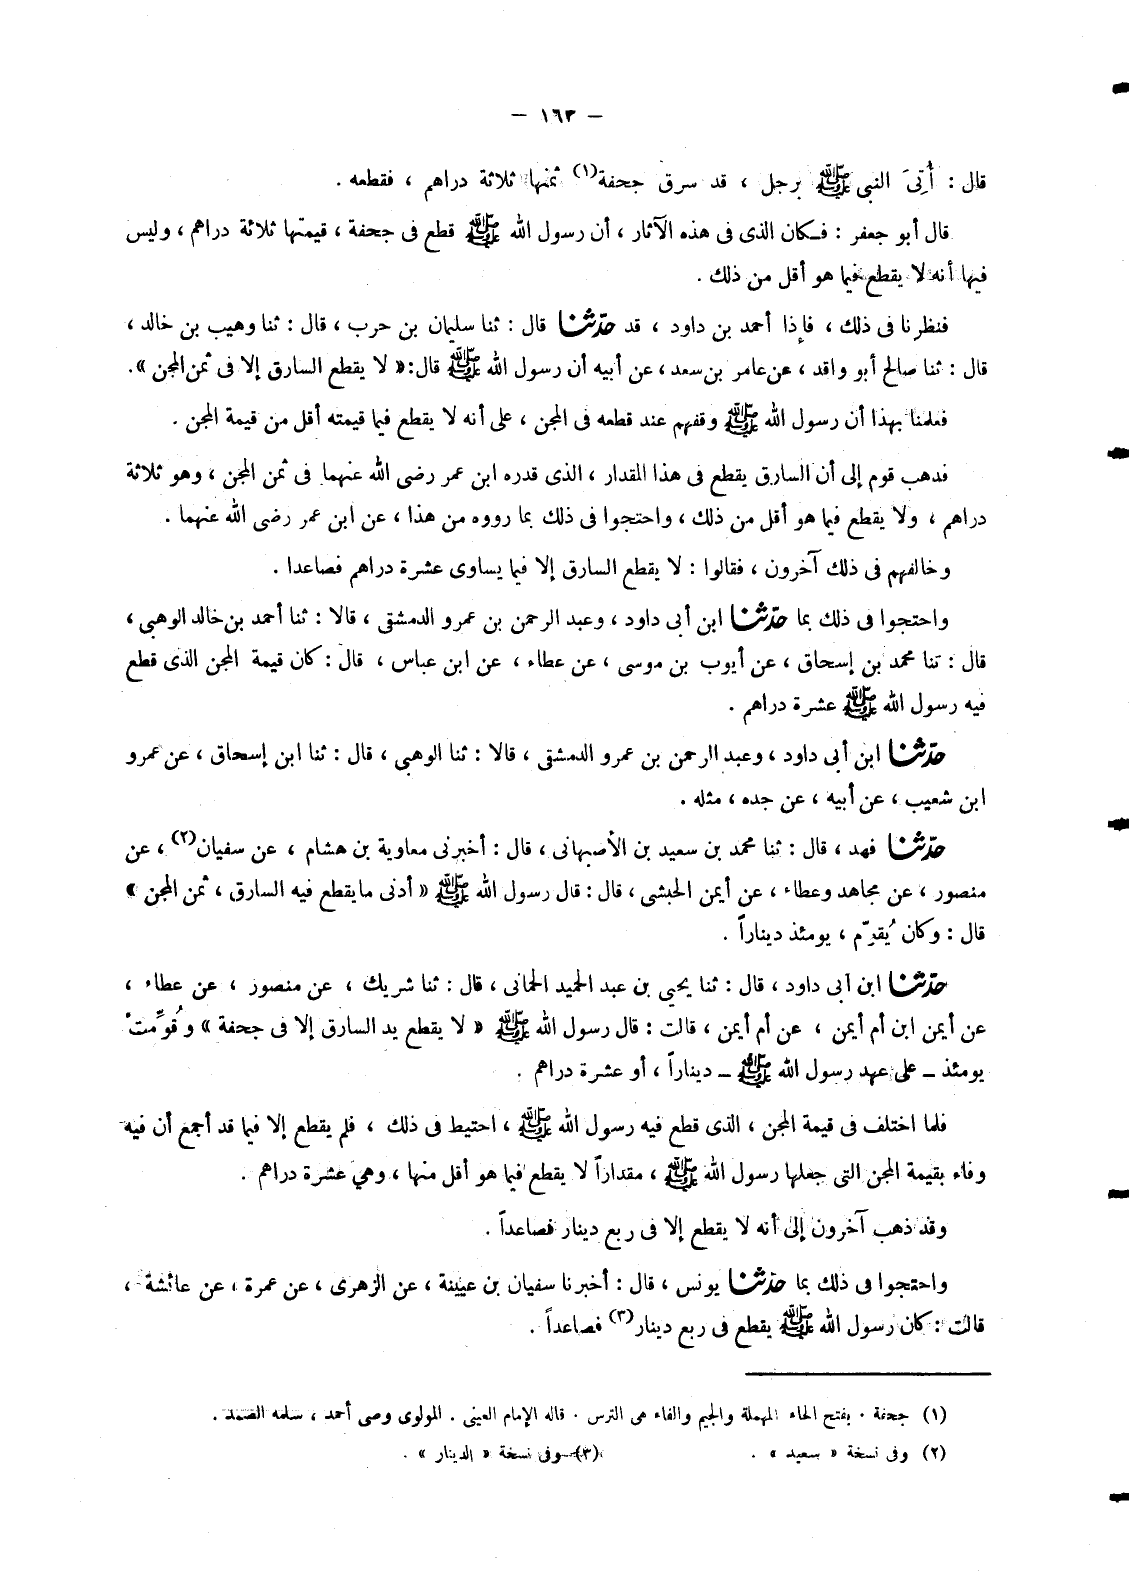 — ١٦٣ —
قال : أُتِىَ النبى ﷺ برجل ، قد سرق جحفة(١) ثمنها ثلاثة دراهم ، فقطعه .
قال أبو جعفر : فكان الذى فى هذه الآثار ، أن رسول الله ﷺ قطع فى جحفة ، قيمتها ثلاثة دراهم ، وليس
فيها أنه لا يقطع فيما هو أقل من ذلك .
فنظرنا فى ذلك ، فإذا أحمد بن داود ، قد حدّثنا قال : ثنا سليمان بن حرب ، قال : ثنا وهيب بن خالد ،
قال : ثنا صالح أبو واقد ، عن عامر بن سعد ، عن أبيه أن رسول الله ﷺ قال: « لا يقطع السارق إلا فى ثمن المجن » .
فعلمنا بهذا أن رسول الله ﷺ وقفهم عند قطعه فى المجن ، على أنه لا يقطع فيما قيمته أقل من قيمة المجن .
فذهب قوم إلى أن السارق يقطع فى هذا المقدار ، الذى قدره ابن عمر رضى الله عنهما فى ثمن المجن ، وهو ثلاثة
دراهم ، ولا يقطع فيما هو أقل من ذلك ، واحتجوا فى ذلك بما رووه من هذا ، عن ابن عمر رضى الله عنهما .
وخالفهم فى ذلك آخرون ، فقالوا : لا يقطع السارق إلا فيما يساوى عشرة دراهم فصاعدا .
واحتجوا فى ذلك بما حدّثنا ابن أبى داود ، وعبد الرحمن بن عمرو الدمشقى ، قالا : ثنا أحمد بن خالد الوهبى ،
قال : ثنا محمد بن إسحاق ، عن أيوب بن موسى ، عن عطاء ، عن ابن عباس ، قال : كان قيمة المجن الذى قطع
فيه رسول الله ﷺ عشرة دراهم .
حدّثنا ابن أبى داود ، وعبد الرحمن بن عمرو الدمشقى ، قالا : ثنا الوهبى ، قال : ثنا ابن إسحاق ، عن عمرو
ابن شعيب ، عن أبيه ، عن جده ، مثله .
حدّثنا فهد ، قال : ثنا محمد بن سعيد بن الأصبهانى ، قال : أخبرنى معاوية بن هشام ، عن سفيان(٢) ، عن
منصور ، عن مجاهد وعطاء ، عن أيمن الحبشى ، قال : قال رسول الله ﷺ « أدنى ما يقطع فيه السارق ، ثمن المجن »
قال : وكان يُقوّم ، يومئذ ديناراً .
حدّثنا ابن أبى داود ، قال : ثنا يحيى بن عبد الحميد الحمانى ، قال : ثنا شريك ، عن منصور ، عن عطاء ،
عن أيمن ابن أم أيمن ، عن أم أيمن ، قالت : قال رسول الله ﷺ « لا يقطع يد السارق إلا فى جحفة » وقُوِّمتْ
يومئذ ـ على عهد رسول الله ﷺ ـ ديناراً ، أو عشرة دراهم .
فلما اختلف فى قيمة المجن ، الذى قطع فيه رسول الله ﷺ ، احتيط فى ذلك ، فلم يقطع إلا فيما قد أجمع أن فيه
وفاء بقيمة المجن التى جعلها رسول الله ﷺ ، مقداراً لا يقطع فيما هو أقل منها ، وهى عشرة دراهم .
وقد ذهب آخرون إلى أنه لا يقطع إلا فى ربع دينار فصاعداً .
واحتجوا فى ذلك بما حدّثنا يونس ، قال : أخبرنا سفيان بن عيينة ، عن الزهرى ، عن عمرة ، عن عائشة ،
قالت : كان رسول الله ﷺ يقطع فى ربع دينار(٣) فصاعداً .
(١) جحفة . بفتح الحاء المهملة والجيم والفاء هى الترس . قاله الإمام العينى . المولوى وصى أحمد ، سلمه الصمد .
(٢) وفى نسخة « سعيد » . (٣) وفى نسخة « الدينار » .